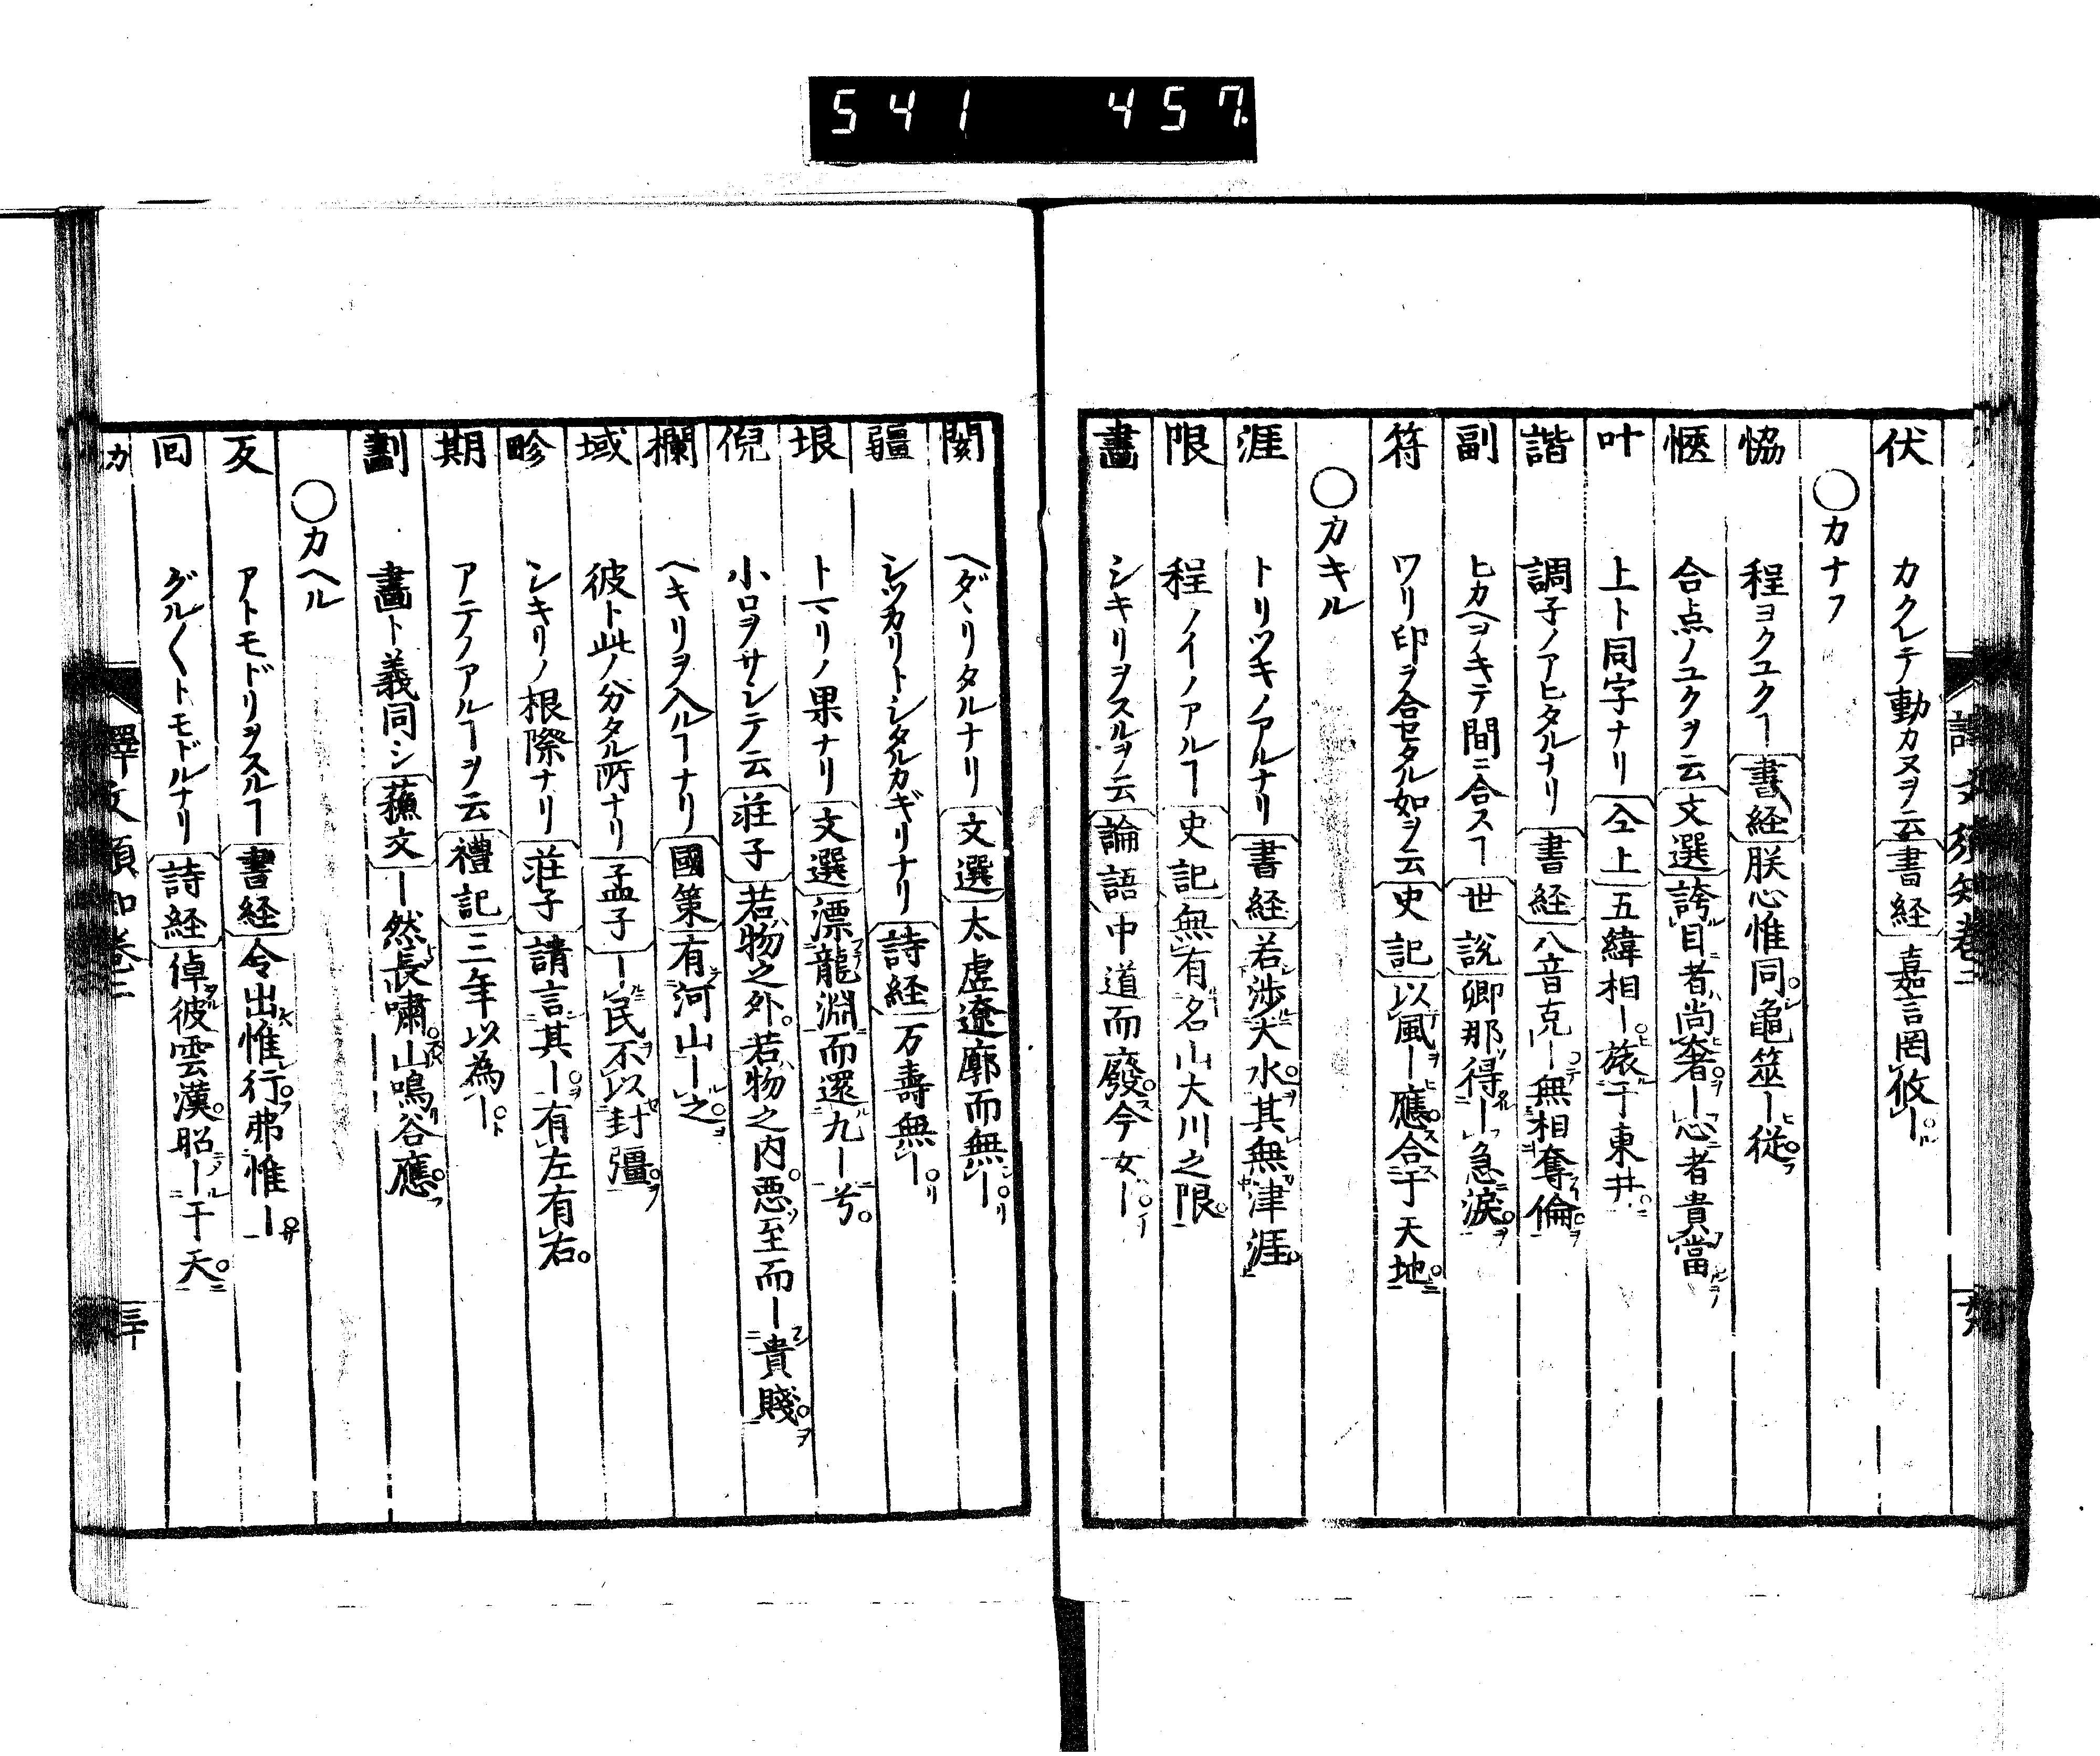 541 457
譯文須知巻二
伏 カクレテ動カヌヲ云 書経 嘉言罔攸ー
○カナフ
恊 程ヨクユクヿ 書経 朕心惟同亀筮ー従
愜 合点ノユクヲ云 文選 誇目者尚奢ー心者貴當
叶 上ト同字ナリ 仝上 五緯相ー旅于東井
諧 調子ノアヒタルナリ 書経 八音克ー無相奪倫
副 ヒカヘヲノキテ間ニ合スヿ 世説 卿那得ー急淚
符 ワリ印ヲ合セタル如ヲ云 史記 以風ー應合于天地
○カキル
涯 トリツキノアルナリ 書経 若渉大水其無津涯
限 程ノイノアルヿ 史記 無有名山大川之限
畫 シキリヲスルヲ云 論語 中道而廢今女ー
閡 ヘダヽリタルナリ 文選 太虚遼廓而無ー
疆 シツカリトシタルカギリナリ 詩経 万壽無ー
垠 トヾマリノ果ナリ 文選 漂龍淵而還九ー兮
倪 小口ヲサシテ云 荘子 若物之外若物之内悪至而ー貴賤
欄 ヘキリヲ入ルヿナリ 國策 有河山ー之
域 彼ト此ノ分タル所ナリ 孟子 ー民不以封彊
畛 シキリノ根際ナリ 荘子 請言其ー有左有右
期 アテノアルヿヲ云 禮記 三年以為ー
劃 畫ト義同シ 蘓文 ー然長嘯山鳴谷應
○カヘル
反 アトモドリヲスルヿ 書経 令出惟行弗惟ー
回 グル〱トモドルナリ 詩経 倬彼雲漢昭ー于天
カ 譯文須知巻二 三十